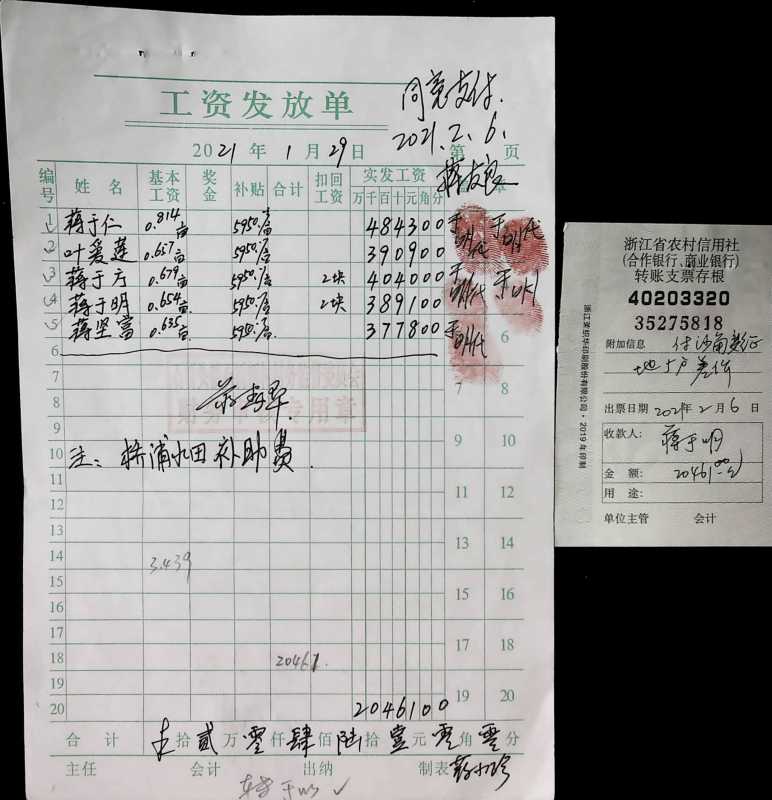 工资发放单
同意支付.
2021.2.6.
2021 年 1 月 29 日 第 页
编号 姓名 基本工资 奖金 补贴 合计 扣回工资 实发工资 章
万 千 百 十 元 角 分
1 蒋于仁 0.814亩 5950元/亩 4 8 4 3 0 0 于明代 于明代
2 叶爱莲 0.657亩 5950元/亩 3 9 0 9 0 0
3 蒋于方 0.679亩 5950元/亩 2块 4 0 4 0 0 0 于明代 于明
4 蒋于明 0.654亩 5950元/亩 2块 3 8 9 1 0 0
5 蒋坚富 0.635亩 5950元/亩 3 7 7 8 0 0 于明代 6
6
7 7 8
8
财务专用章
9 9 10
10 注: 桥浦水田补助费.
11 11 12
12
13 13 14
14 3.439
15 15 16
16
17 17 18
18 20461.
19 19 20
20 2 0 4 6 1 0 0
合计 拾 贰 万 零 仟 肆 佰 陆 拾 壹 元 零 角 零 分
主任 会计 出纳 制表
浙江省农村信用社
(合作银行、商业银行)
转账支票存根
40203320
35275818
附加信息 付沙角
出票日期 2021年 2月 6日
收款人: 蒋于明
金额: 20461.00元
用途:
单位主管 会计